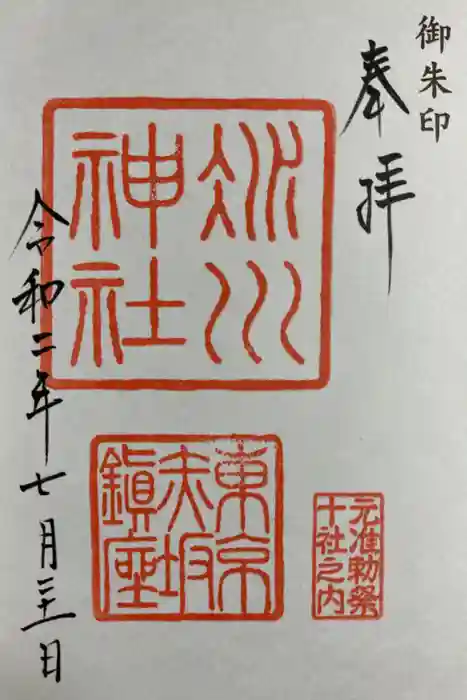 御朱印
奉拝
冰川
神社
東京
赤坂
鎮座
元准勅祭
十社之内
令和二年七月二十一日